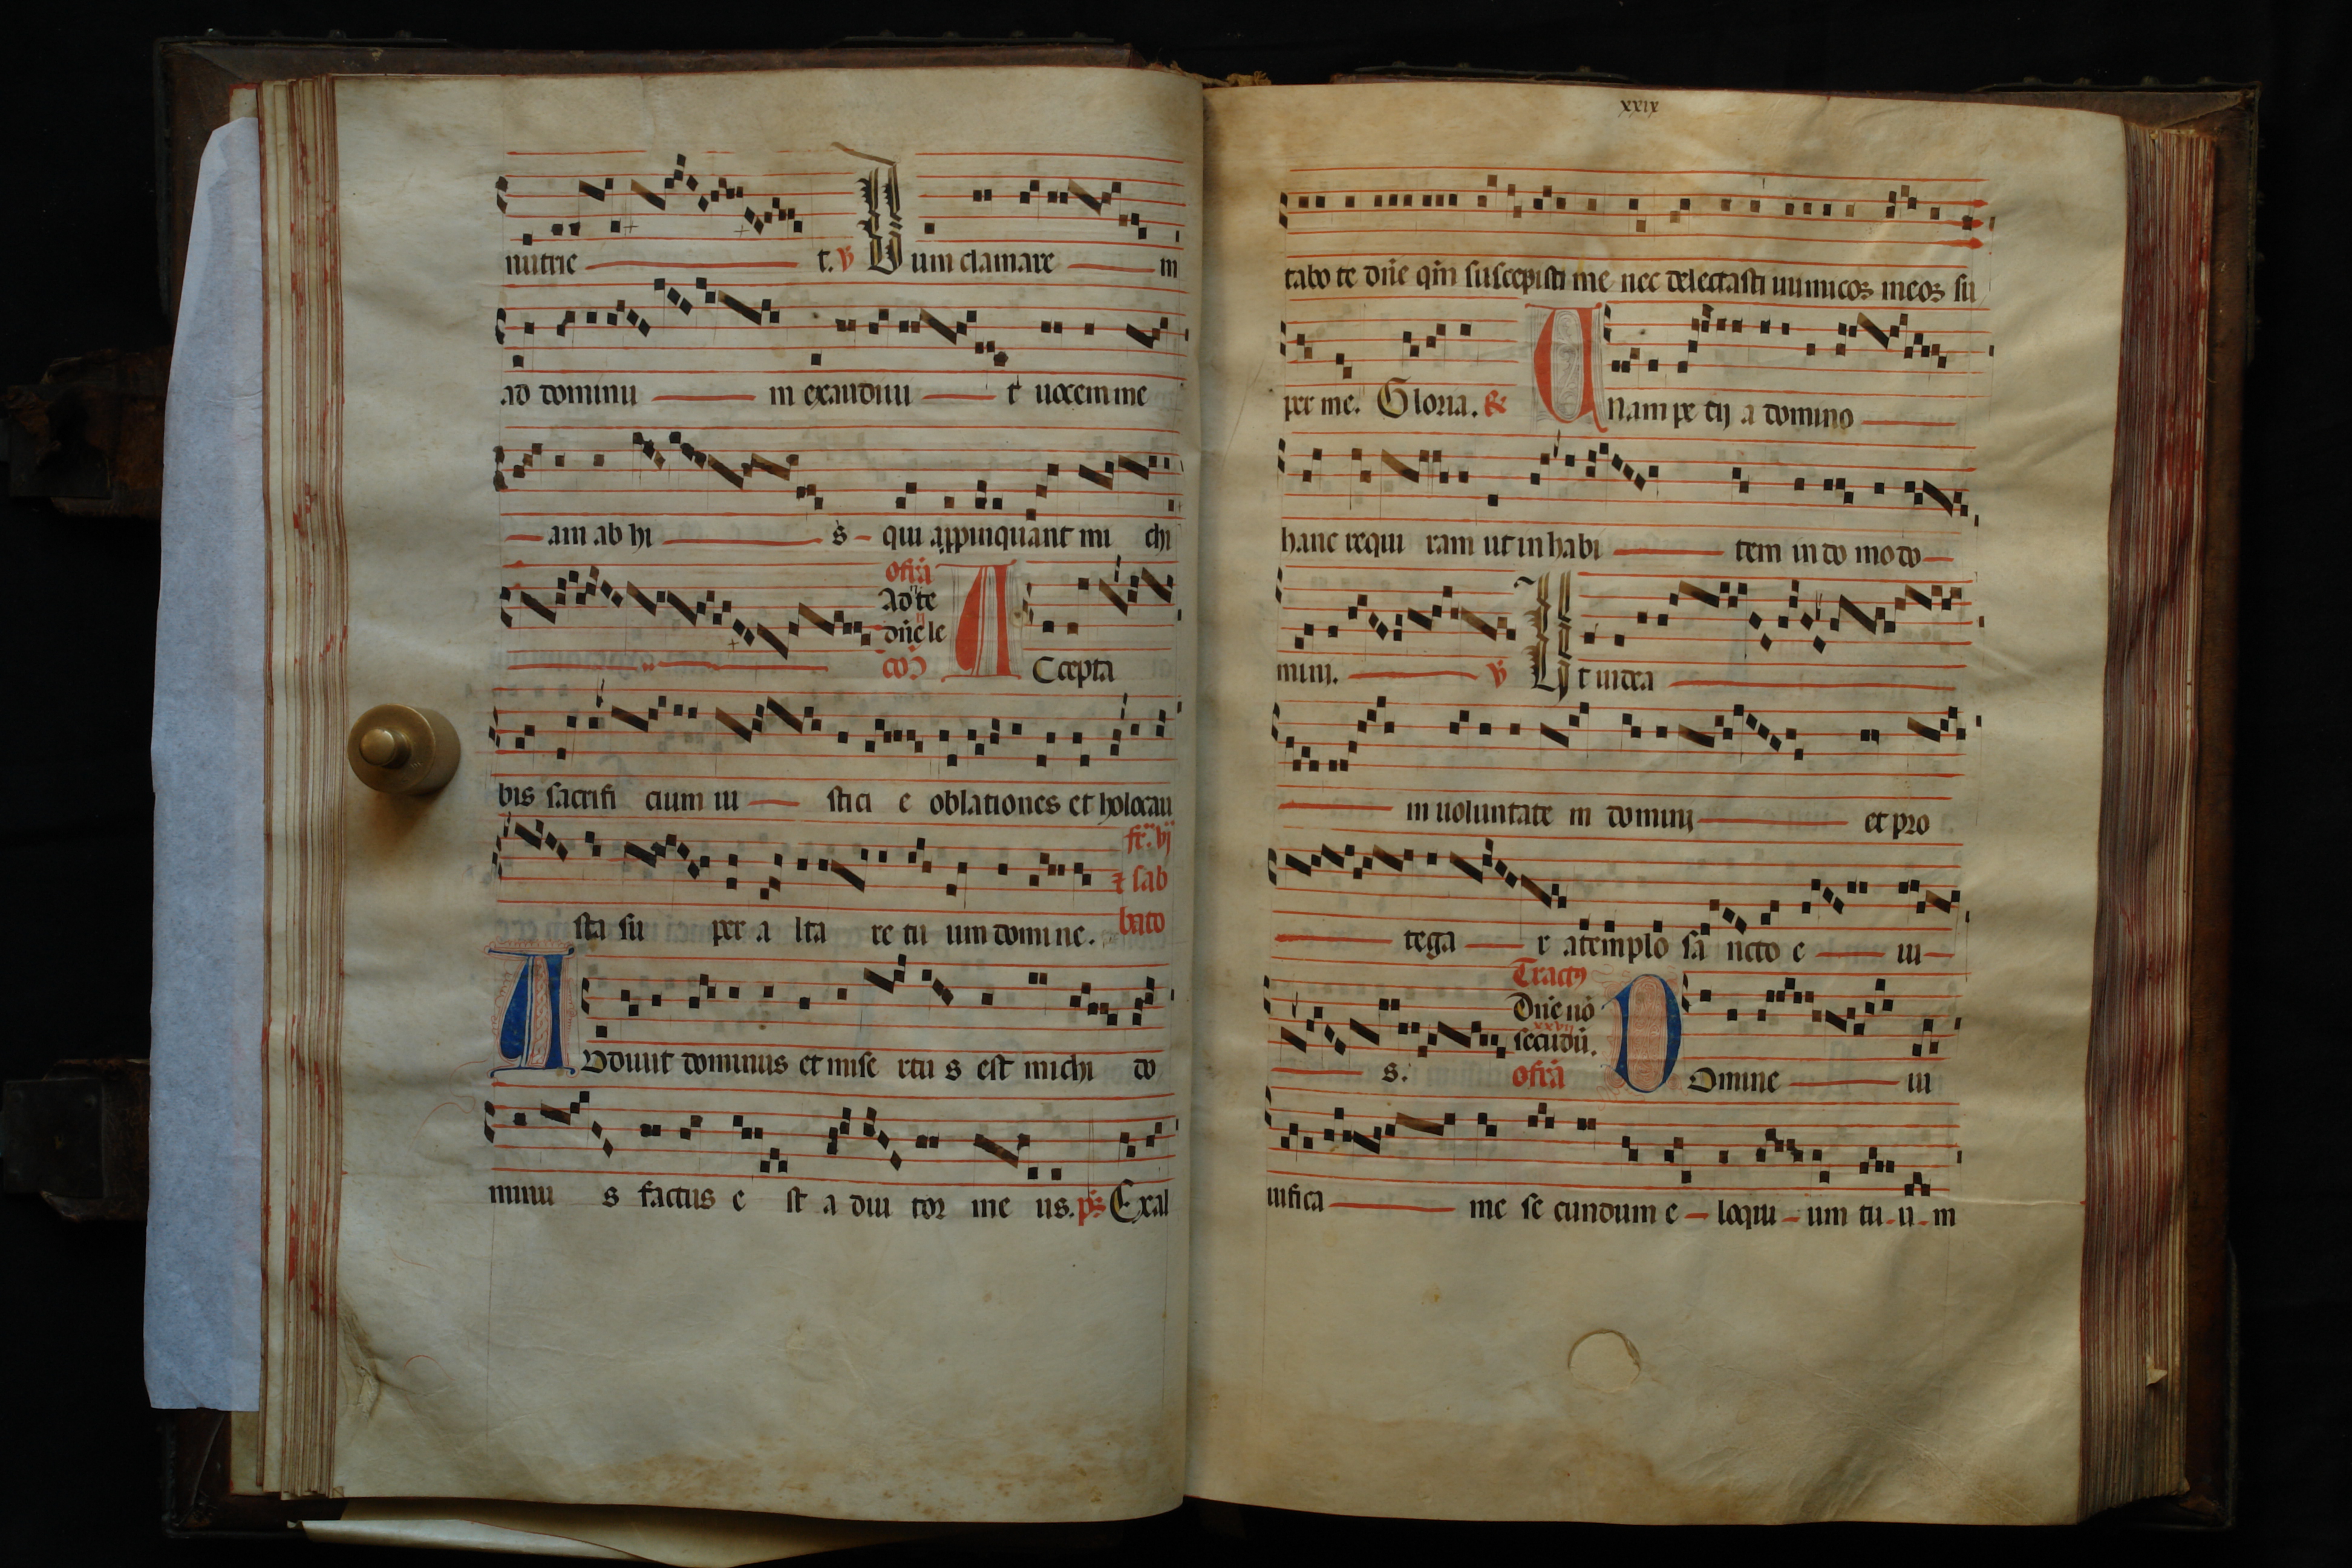 nutrie t. ℣ Dum clamare m
ad dominu m exaudiuit uocem me
am ab his qui appinquant michi
offr̄a
Ad te
dn̄e le
cō
Accepta
bis sacrifi cium iu stici e oblationes et holocau
sta su per a lta re tu um domine. fr̄. vj
⁊ sab
bato
Adiuit dominus et mise rtu s est michi do
minu s factus e st a diu tor me us. p̄s Exal
xxix
tabo te dn̄e qm̄ suscepisti me nec delectasti inimicoꝝ meoꝝ su
per me. Gloria. &
Unam pe tij a domino
hanc requi ram ut inhabi tem in do mo do
mini. ℣ Ut uidea
m uoluntate m domini et pro
tega r a templo sa ncto e iu
s. Tractꝰ
Dn̄e nō
xxvij
secūdū.
offr̄a
Domine ui
uifica me se cundum e loqui um tu u m